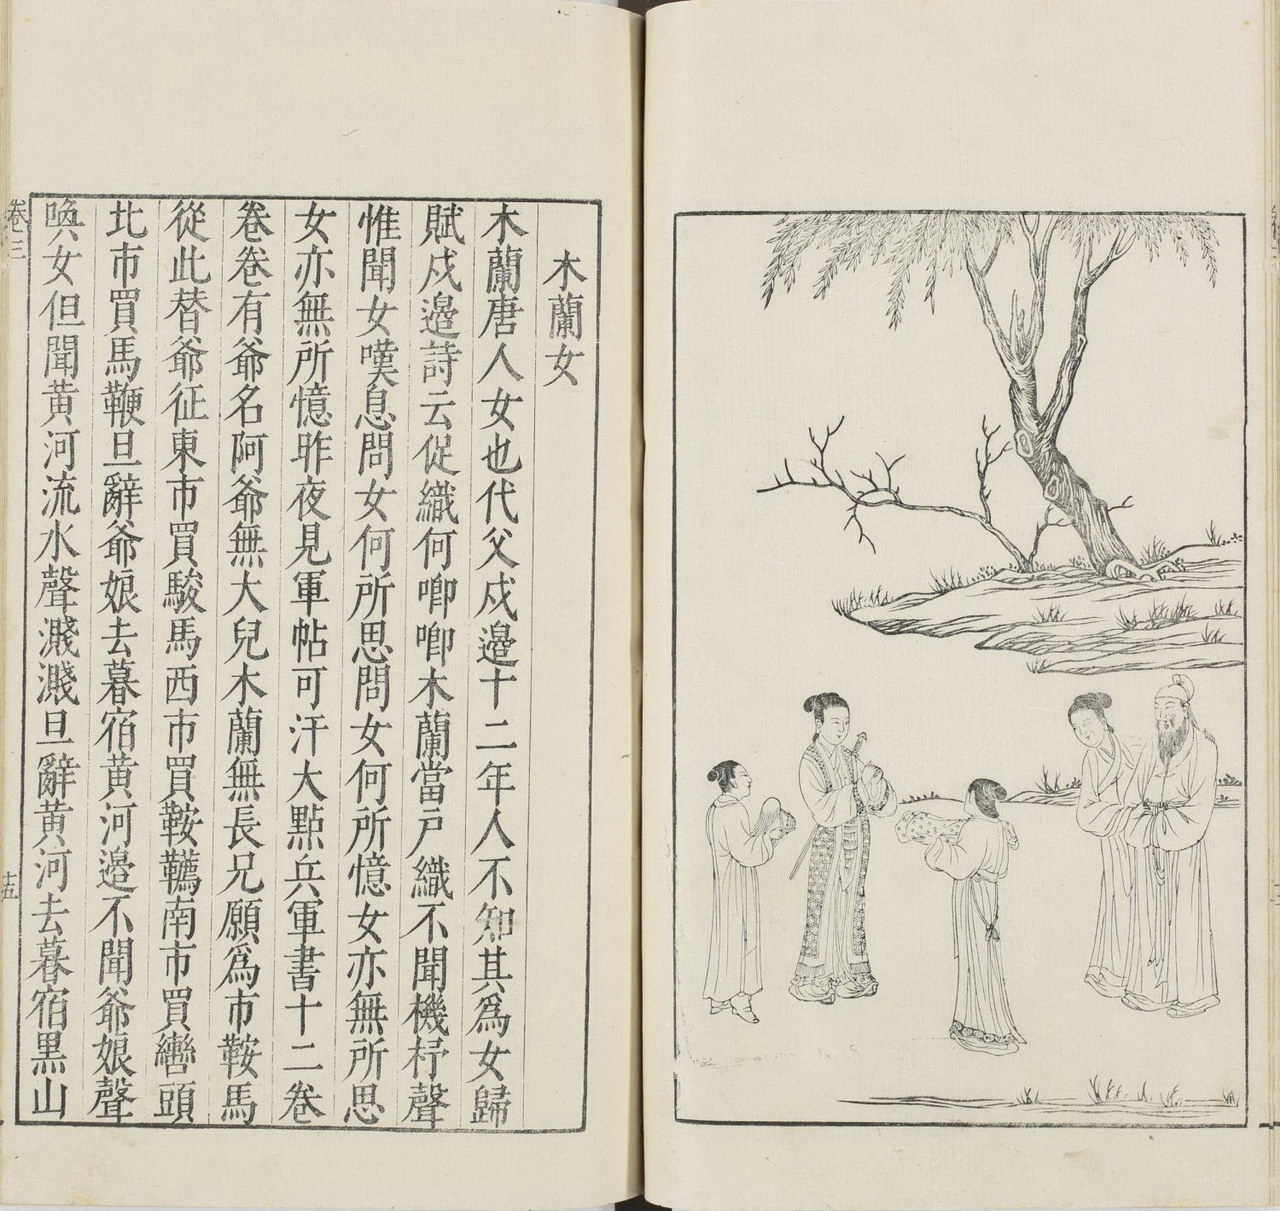 木蘭女
木蘭唐人女也代父戍邉十二年人不知其爲女歸
賦戍邉詩云促織何唧唧木蘭當戸織不聞機杼聲
惟聞女嘆息問女何所思問女何所憶女亦無所思
女亦無所憶昨夜見軍帖可汗大點兵軍書十二卷
卷卷有爺名阿爺無大兒木蘭無長兄願爲市鞍馬
從此替爺征東市買駿馬西市買鞍韉南市買轡頭
北市買馬鞭旦辭爺娘去暮宿黄河邉不聞爺娘聲
喚女但聞黄河流水聲濺濺旦辭黄河去暮宿黒山
卷三
十五